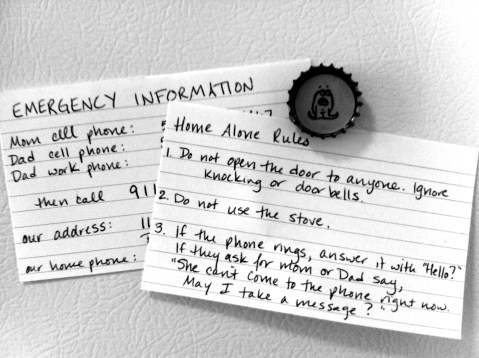 EMERGENCY INFORMATION
Mom cell phone:
Dad cell phone:
Dad work phone:
then call 911
our address: 11
our home phone:
Home Alone Rules
1. Do not open the door to anyone. Ignore
knocking or doorbells.
2. Do not use the stove.
3. If the phone rings, answer it with "Hello?"
If they ask for mom or Dad say,
"She can't come to the phone right now.
May I take a message?"